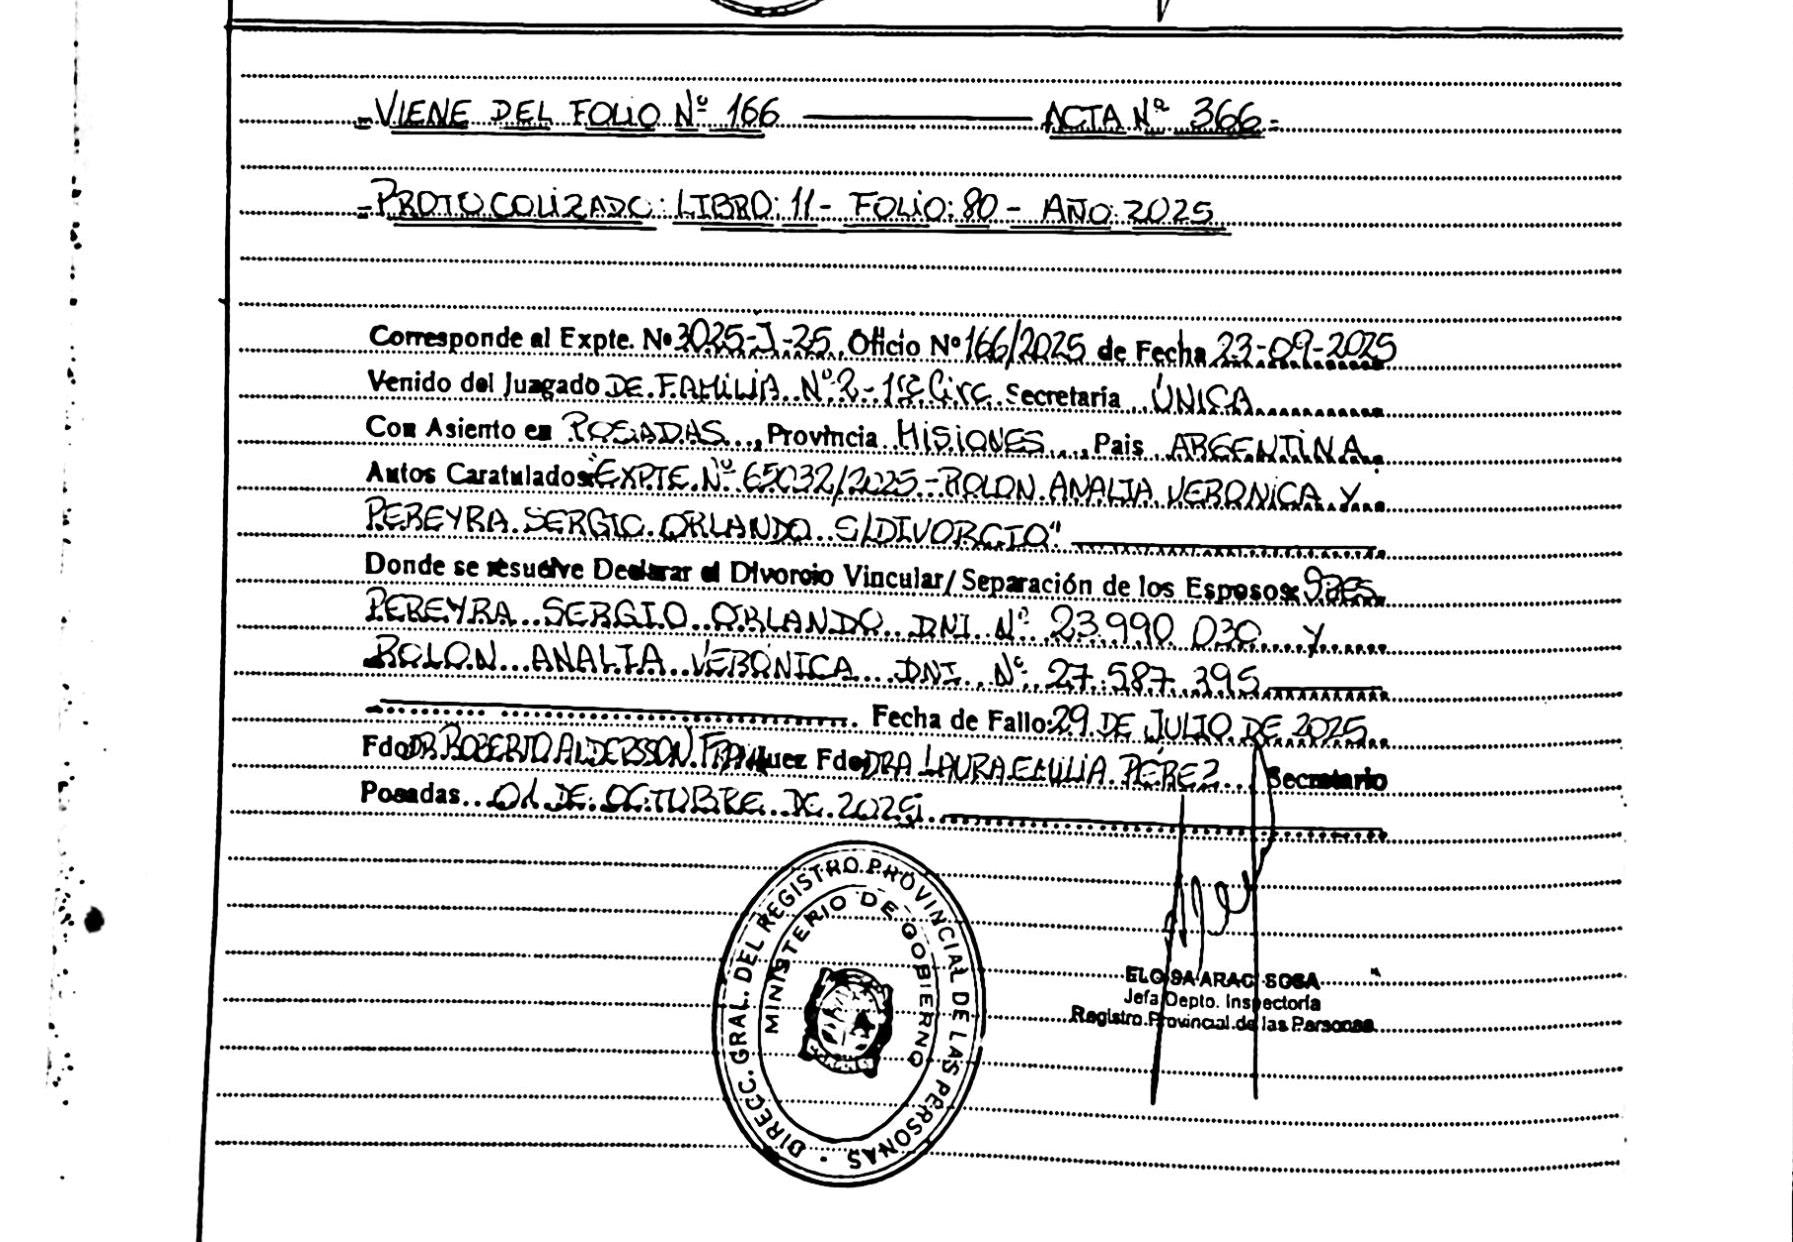 =VIENE DEL FOLIO Nº 166 ACTA Nº 366=
=PROTOCOLIZADO: LIBRO: 11 - FOLIO: 80 - AÑO: 2025
Corresponde al Expte. Nº 3025-J-25 Oficio Nº 166/2025 de Fecha 23-09-2025
Venido del Juzgado DE FAMILIA Nº 2 - 1ra Circ. Secretaría ÚNICA
Con Asiento en POSADAS, Provincia MISIONES, Pais ARGENTINA
Autos Caratulados: "EXPTE. Nº 65032/2025 - ROLON ANALIA VERONICA Y
PEREYRA SERGIO ORLANDO S/DIVORCIO"
Donde se resuelve Declarar el Divorcio Vincular/Separación de los Esposos: Sres
PEREYRA SERGIO ORLANDO DNI Nº 23.990.030 Y
ROLON ANALIA VERONICA DNI Nº 27.587.395
Fecha de Fallo: 29 DE JULIO DE 2025
Fdo DR. ROBERTO ALDERSSON Juez Fdo DRA LAURA EMILIA PÉREZ Secretario
Posadas 01 DE OCTUBRE DE 2025
DIRECC. GRAL. DEL REGISTRO PROVINCIAL DE LAS PERSONAS
MINISTERIO DE GOBIERNO
ELOISA ARACI SOSA
Jefa Depto. Inspectoría
Registro Provincial de las Personas